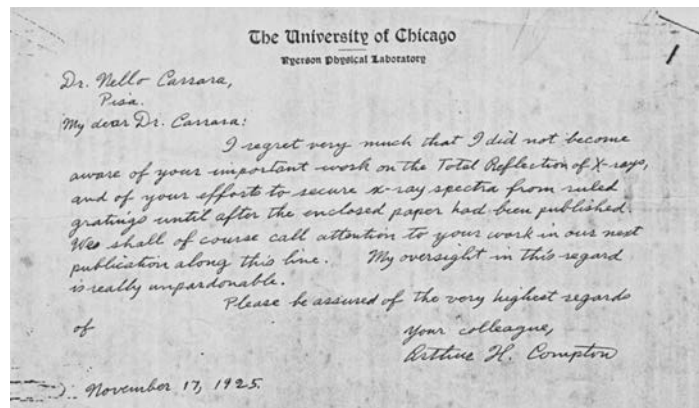 The University of Chicago
Ryerson Physical Laboratory
Dr. Nello Carrara,
Pisa.
My dear Dr. Carrara:
I regret very much that I did not become
aware of your important work on the Total Reflection of X-rays,
and of your efforts to secure x-ray spectra from ruled
gratings until after the enclosed paper had been published.
We shall of course call attention to your work in our next
publication along this line. My oversight in this regard
is really unpardonable.
Please be assured of the very highest regards
of
Your colleague,
Arthur H. Compton
November 17, 1925.